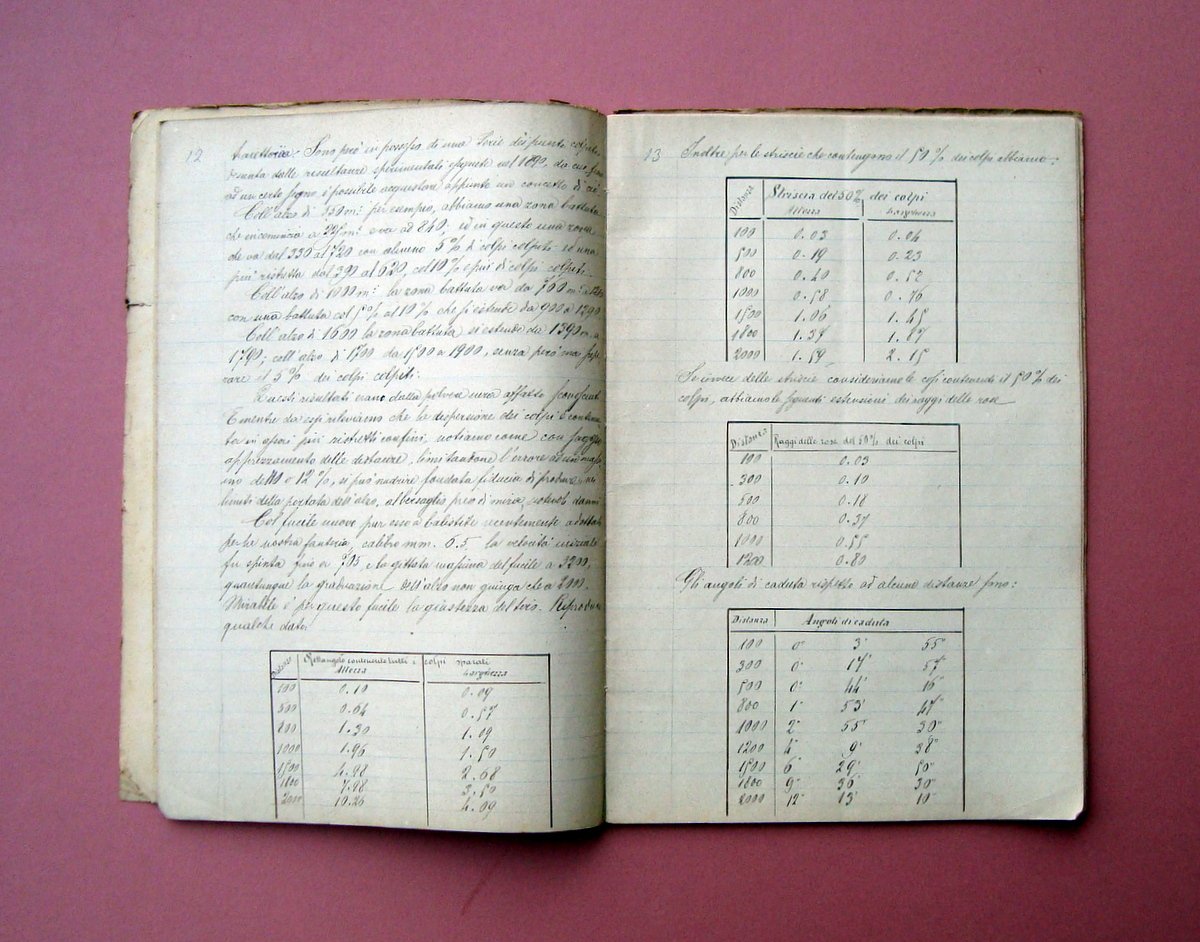 12
traiettoria. Sono però in possesso di una Serie di
risultanze sperimentali eseguite nel 1890, da cui
ad un certo segno è possibile acquistare appunto un concetto di ciò
Coll'alzo di 550 m: per esempio, abbiamo una zona battuta
che incomincia a e va ad 840, ed in questo una zona
che va dal 330 al 720 con almeno 5% di colpi colpiti ed una
più ristretta dal 390 al 620, col 10% e più di colpi colpiti.
Coll'alzo di 1000 m: la zona battuta va da 700 m: a
con una battuta col 5% al 10% che si estende da 900 a 1290
Coll'alzo di 1600 la zona battuta si estende da 1390 m. a
1790; coll'alzo di 1700 da 1500 a 1900, senza però mai supe
rare il 5% dei colpi colpiti.
risultati erano dalla polvere nera affatto sconosciuti
E mentre da essi rileviamo che la dispersione dei colpi è contenu
ta in assai più ristretti confini, notiamo come con saggio
apprezzamento delle distanze, limitandone l'errore ad un mas
imo del 10 o 12%, si può nudrire fondata fiducia di produrre, nei
limiti della portata dell'alzo, al bersaglio preso di mira, notevoli danni
Col fucile nuovo pur esso a balistite recentemente adottato
per la nostra fanteria, calibro mm. 6.5 la velocità iniziale
fu spinta fino a 705 e la gittata massima del fucile a 3200,
quantunque la graduazione dell'alzo non giunga che a 2000.
Mirabile è per questo fucile la giustezza del tiro. Riproduco
qualche dato:
Distanze Rettangolo contenente tutti i colpi sparati
Altezza Larghezza
100 0.10 0.09
500 0.64 0.57
800 1.30 1.09
1000 1.96 1.50
1500 4.98 2.68
1800 7.98 3.50
2000 10.26 4.09
13
Inoltre per le striscie che contengono il 50% dei colpi abbiamo:
Distanze Striscia del 50% dei colpi
Altezza Larghezza
100 0.03 0.04
500 0.19 0.23
800 0.40 0.52
1000 0.58 0.76
1500 1.06 1.45
1800 1.37 1.87
2000 1.59 2.15
Se invece delle striscie consideriamo le rose contenenti il 50% dei
colpi, abbiamo le seguenti estensioni dei raggi delle rose
Distanza Raggi delle rose del 50% dei colpi
100 0.03
300 0.10
500 0.18
800 0.37
1000 0.55
1200 0.80
Gli angoli di caduta rispetto ad alcune distanze sono:
Distanza Angoli di caduta
100 0° 3' 55"
300 0° 17' 57"
500 0° 44' 16"
800 1° 53' 47"
1000 2° 55' 30"
1200 4° 9' 38"
1500 6° 29' 50"
1800 9° 36' 30"
2000 12° 13' 10"